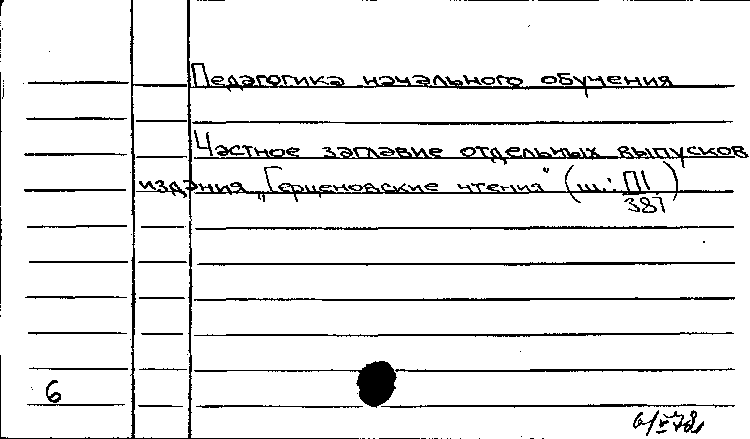 Педагогика начального обучения
Частное заглавие отдельных выпусков
издания „Герценовские чтения" (ш.: П1
387)
6